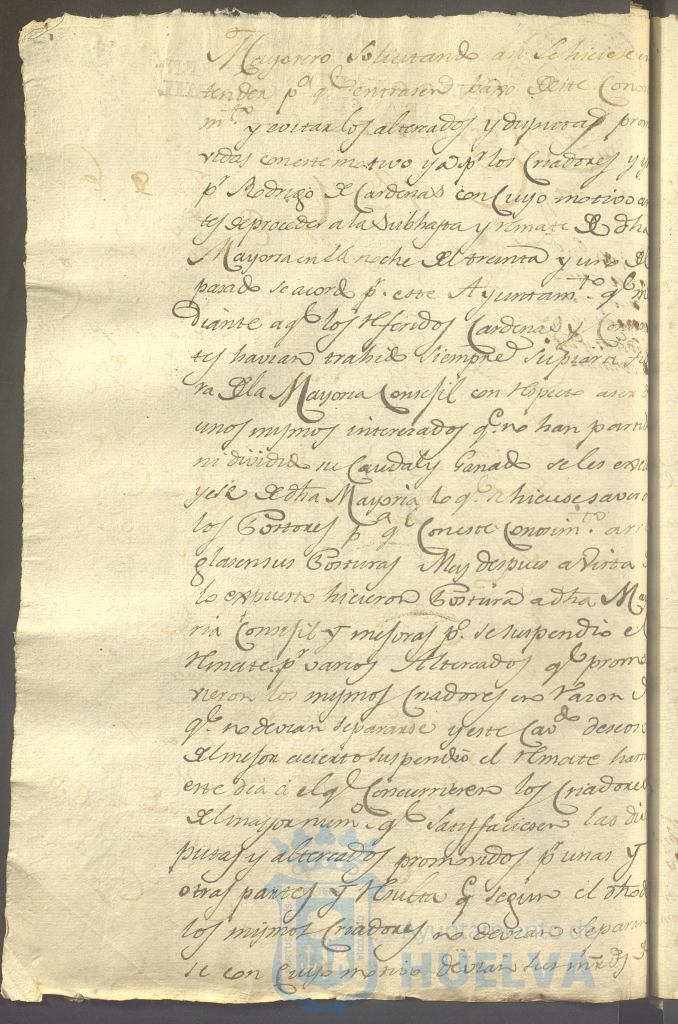 Mayorero solicitando asi se hiciese en
tender pa. ql. entrasen bajo deste Conoci
mto. y evitar los altercados y disputas promo
vidas con este motivo ya pr. los Criadores y ya
pr. Rodrigo de Cardenas con Cuyo motivo an
tes de proceder a la Subhasta y remate de dha
Mayoria en la noche del treinta y uno del
pasado se acordo pr. este Ayuntamto. ql. me
diante a ql. los referidos Cardenas y Consor
tes havian trahido siempre su piara
ra de la Mayoria Consegil con respecto a ser
unos mismos interesados q. no han partido
ni dividido su Caudal y Ganado se les exclu
yese de dha Mayoria lo q. se hiciese saver a
los Postores pa. ql. con este Conocimto. arre
glasen sus Posturas Mas despues a Vista de
lo expuesto hicieron Postura a dha Mayo
ria Consegil y mejoras po. se suspendio el
remate pr. varios Altercados ql. promo
vieron los mismos Criadores en razon de
q. no devian separarse y este Cavdo. deseoso
del mejor acierto suspendio el remate hasta
este dia a el ql. Concurrieren los Criadores
del mayor numo. ql. satisfaciesen las dis
putas y altercados promovidos pr. unas y
otras partes y resulta q. segun el dho de
los mismos Criadores no devian separar
se con Cuyo motivo devian sus mrds
Ayuntamiento de
HUELVA